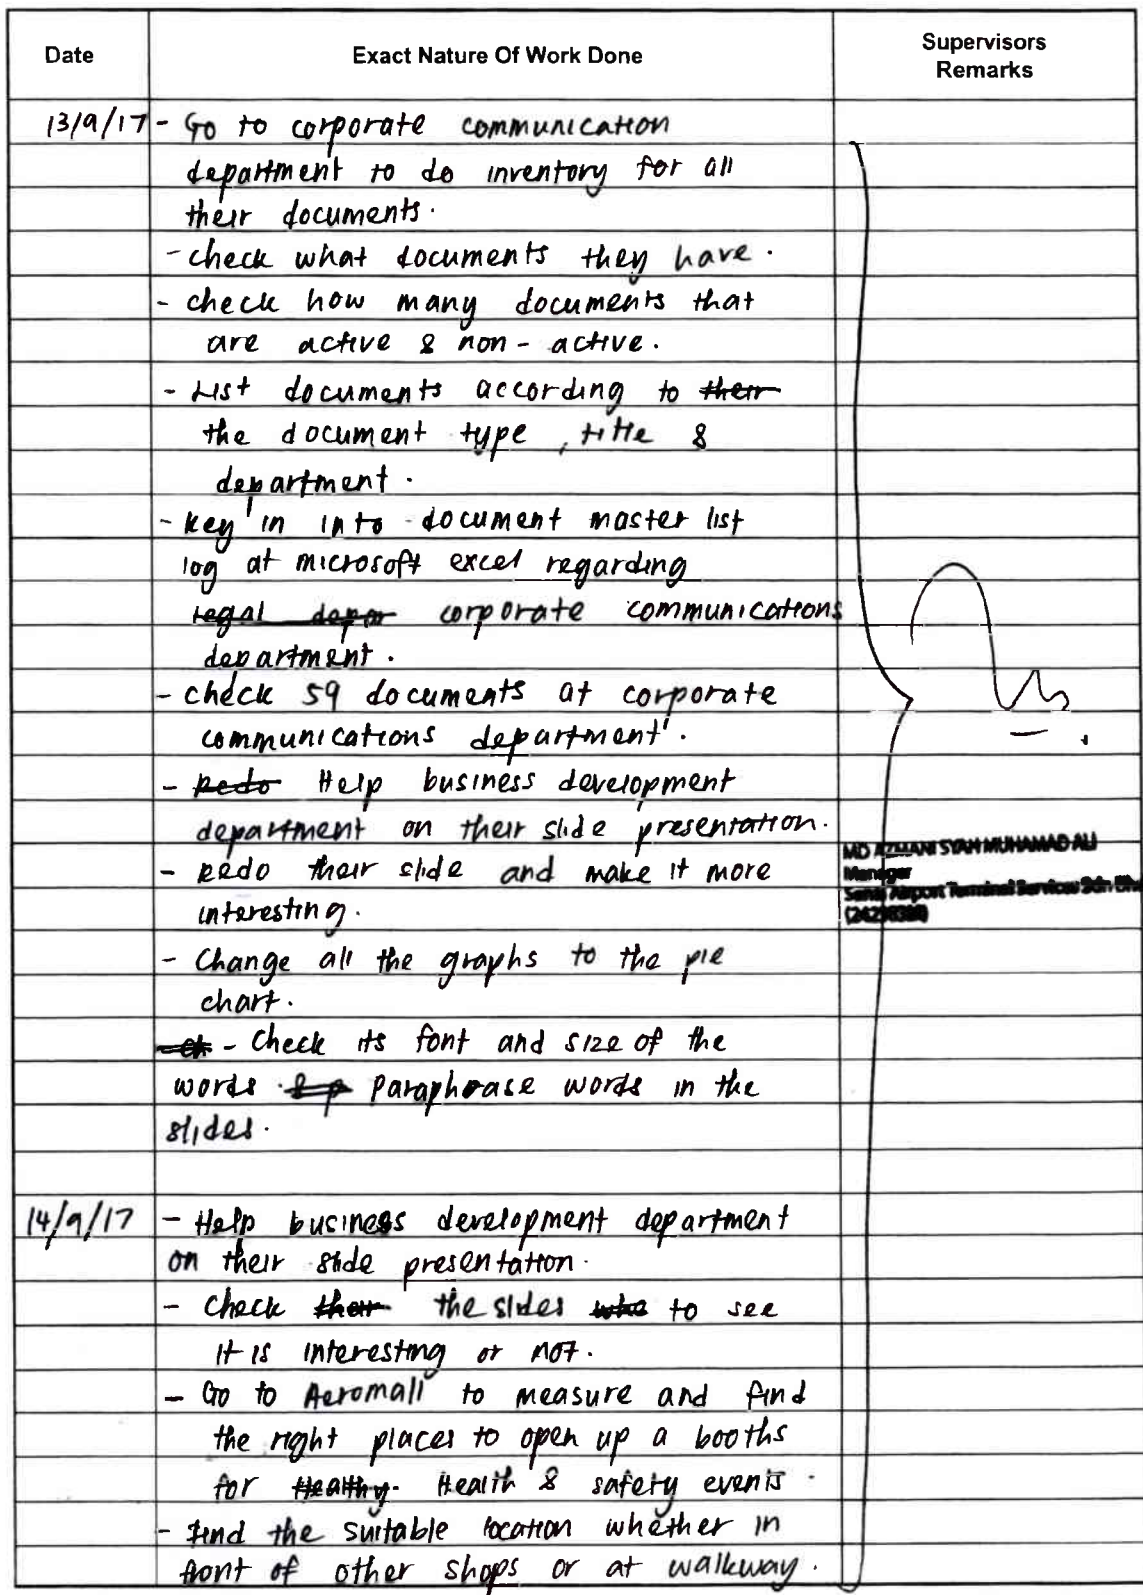 Date
Exact Nature Of Work Done
Supervisors
Remarks
13/9/17 - Go to corporate communication
department to do inventory for all
their documents.
- check what documents they have.
- check how many documents that
are active & non-active.
- List documents according to their
the document type, title &
department.
- key in into document master list
log at microsoft excel regarding
legal depar corporate communications
department.
- check 59 documents at corporate
communications department.
- Redo Help business development
department on their slide presentation.
- Redo their slide and make it more
interesting.
- Change all the graphs to the pie
chart.
- Check its font and size of the
words. & p Paraphrase words in the
slides.
MD AZMANI SYAH MUHAMAD ALI
Manager
Senai Airport Terminal Services Sdn Bhd
14/9/17 - Help business development department
on their slide presentation.
- Check their the slides to see
it is interesting or not.
- Go to Aeromall to measure and find
the right places to open up a booths
for Healthy Health & safety events.
- Find the suitable location whether in
front of other shops or at walkway.